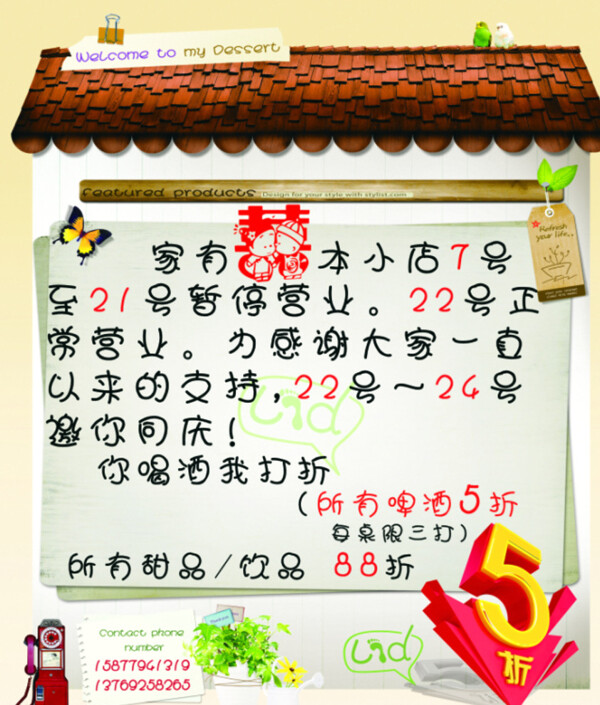 Welcome to my Dessert
Featured products Design for your style with stylist.com
Refresh
your life..
家有囍本小店7号
至21号暂停营业。22号正
常营业。为感谢大家一直
以来的支持,22号～24号
邀你同庆!
你喝酒我打折
(所有啤酒5折
每桌限三打)
所有甜品/饮品 88折
5
折
Contact phone
number
15877941319
13769258265